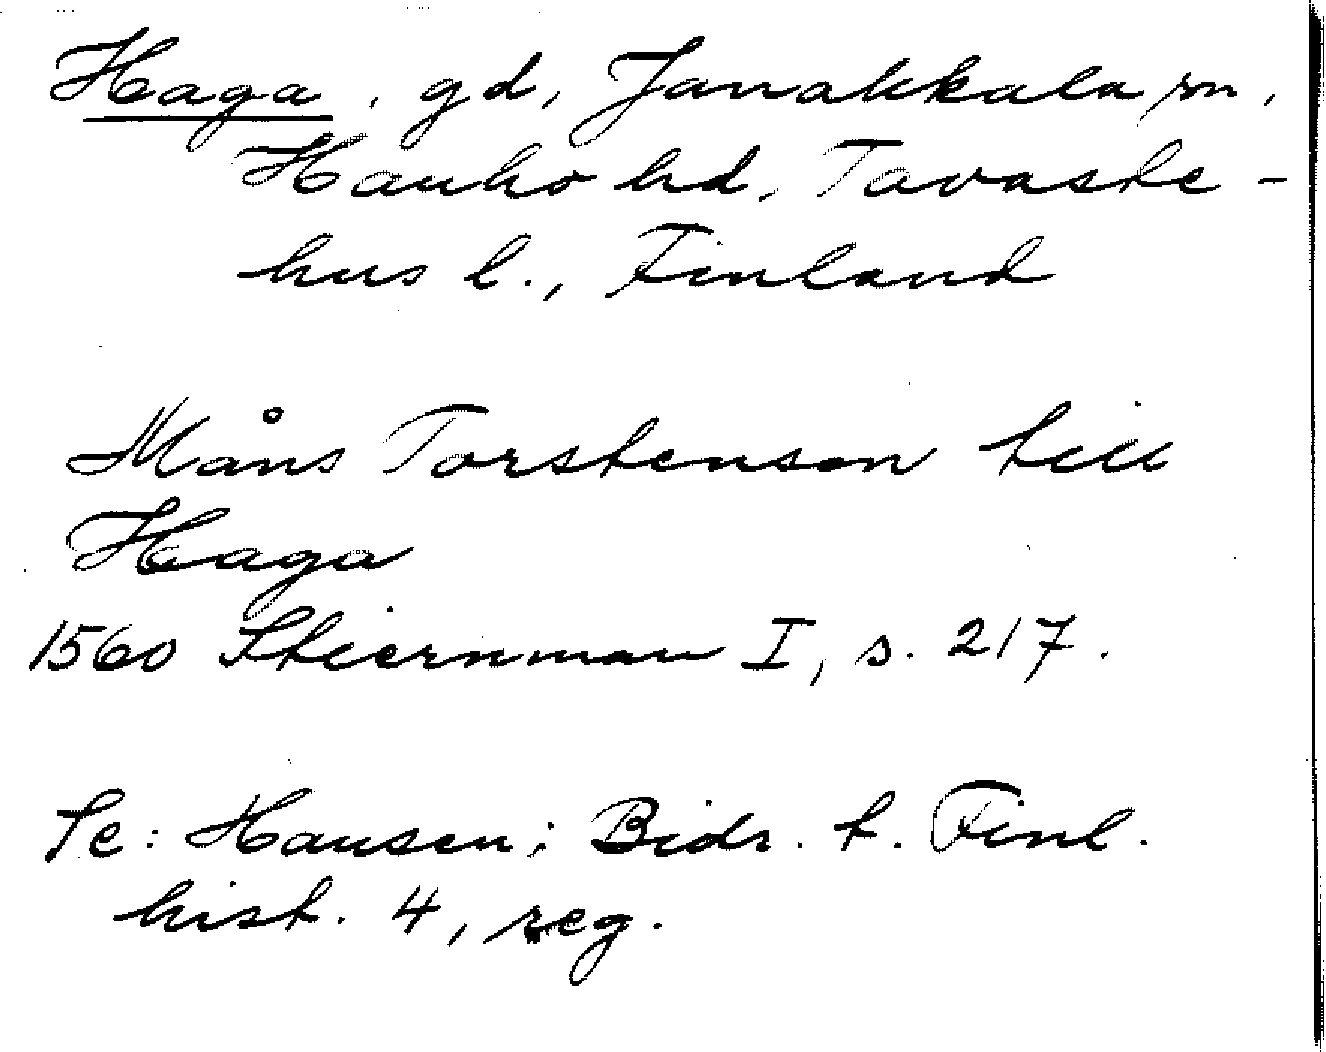 Haga, gd, Janakkala sn,
Hauho hd, Tavaste-
hus l., Finland
Måns Torstenson till
Haga
1560 Stiernman I, s. 217.
Se: Hausen; Bidr. t. Finl.
hist. 4, reg.